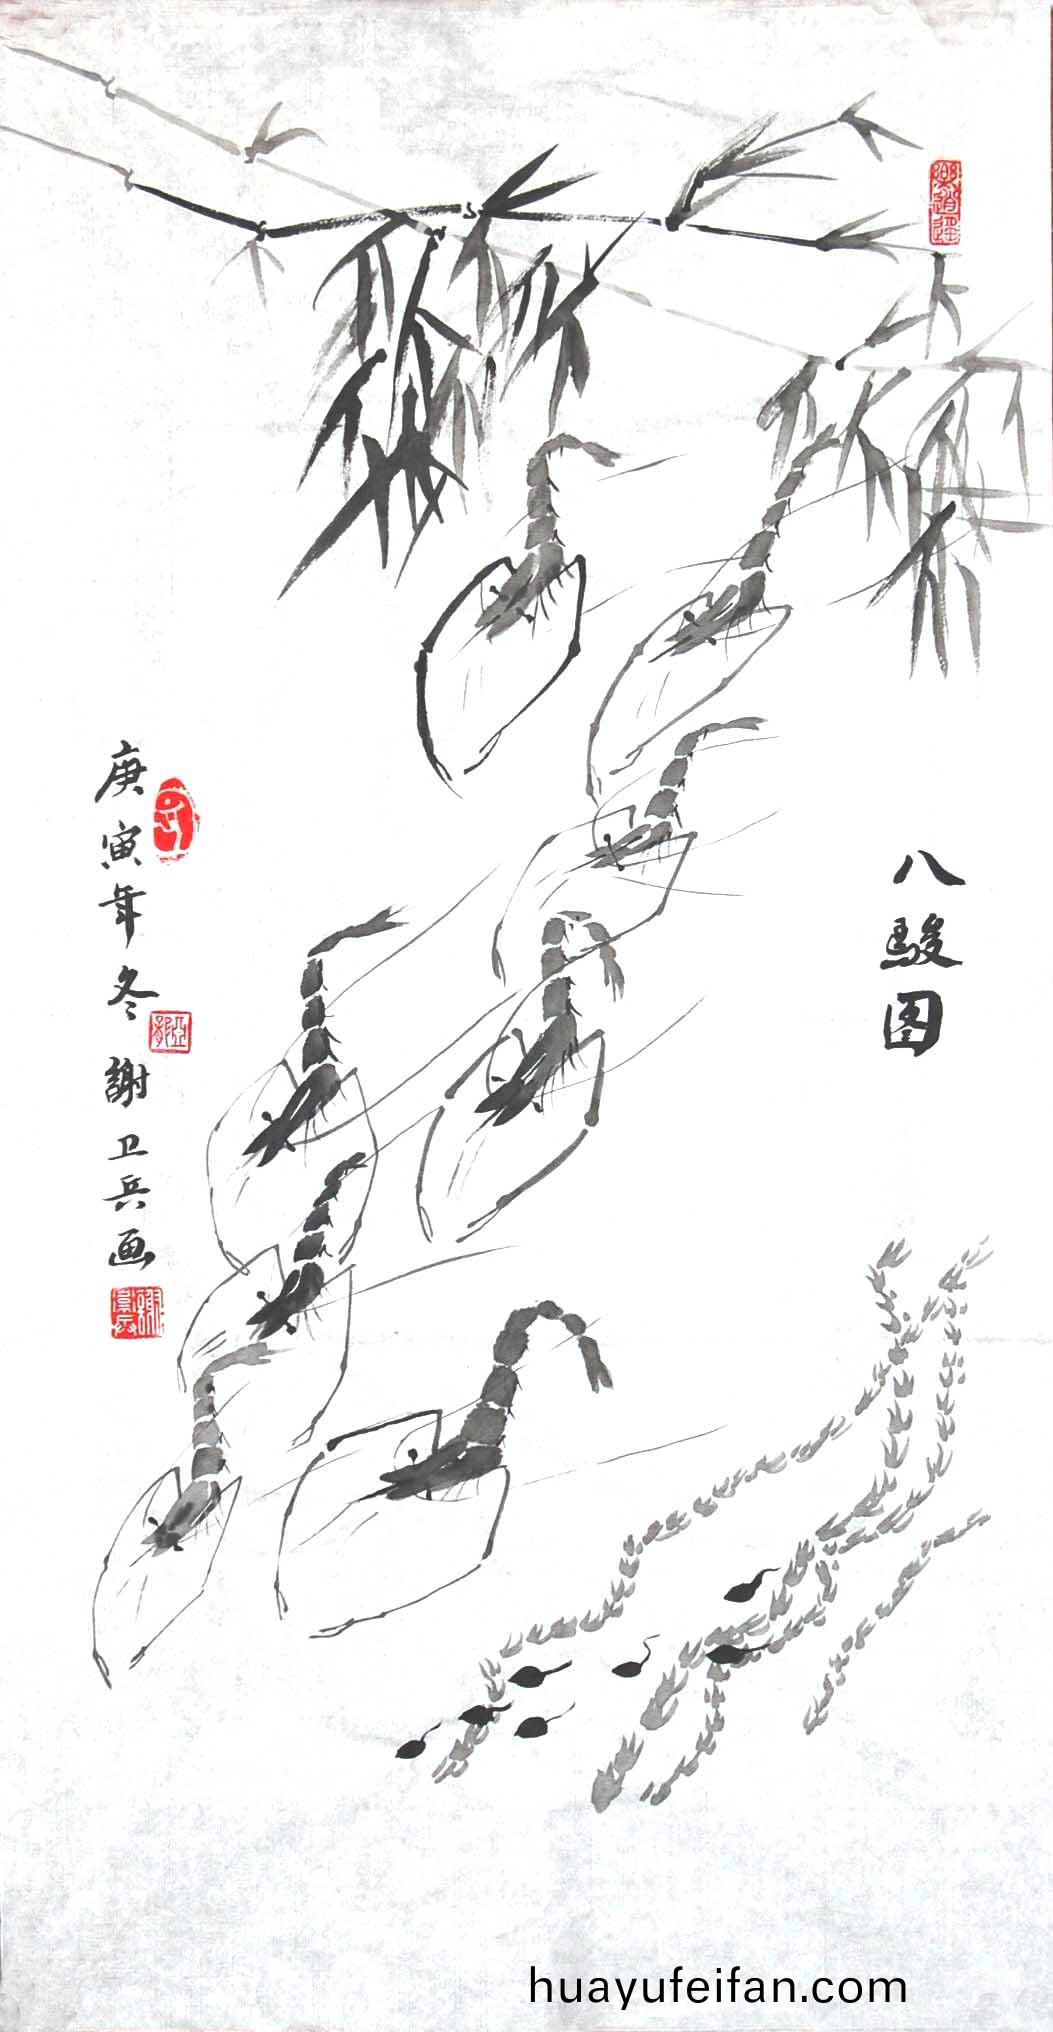 八駿图
庚寅年冬 謝卫兵画
樂逍遥
huayufeifan.com